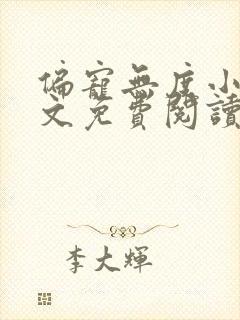 偏寵無度小
文免費閱讀
李大輝